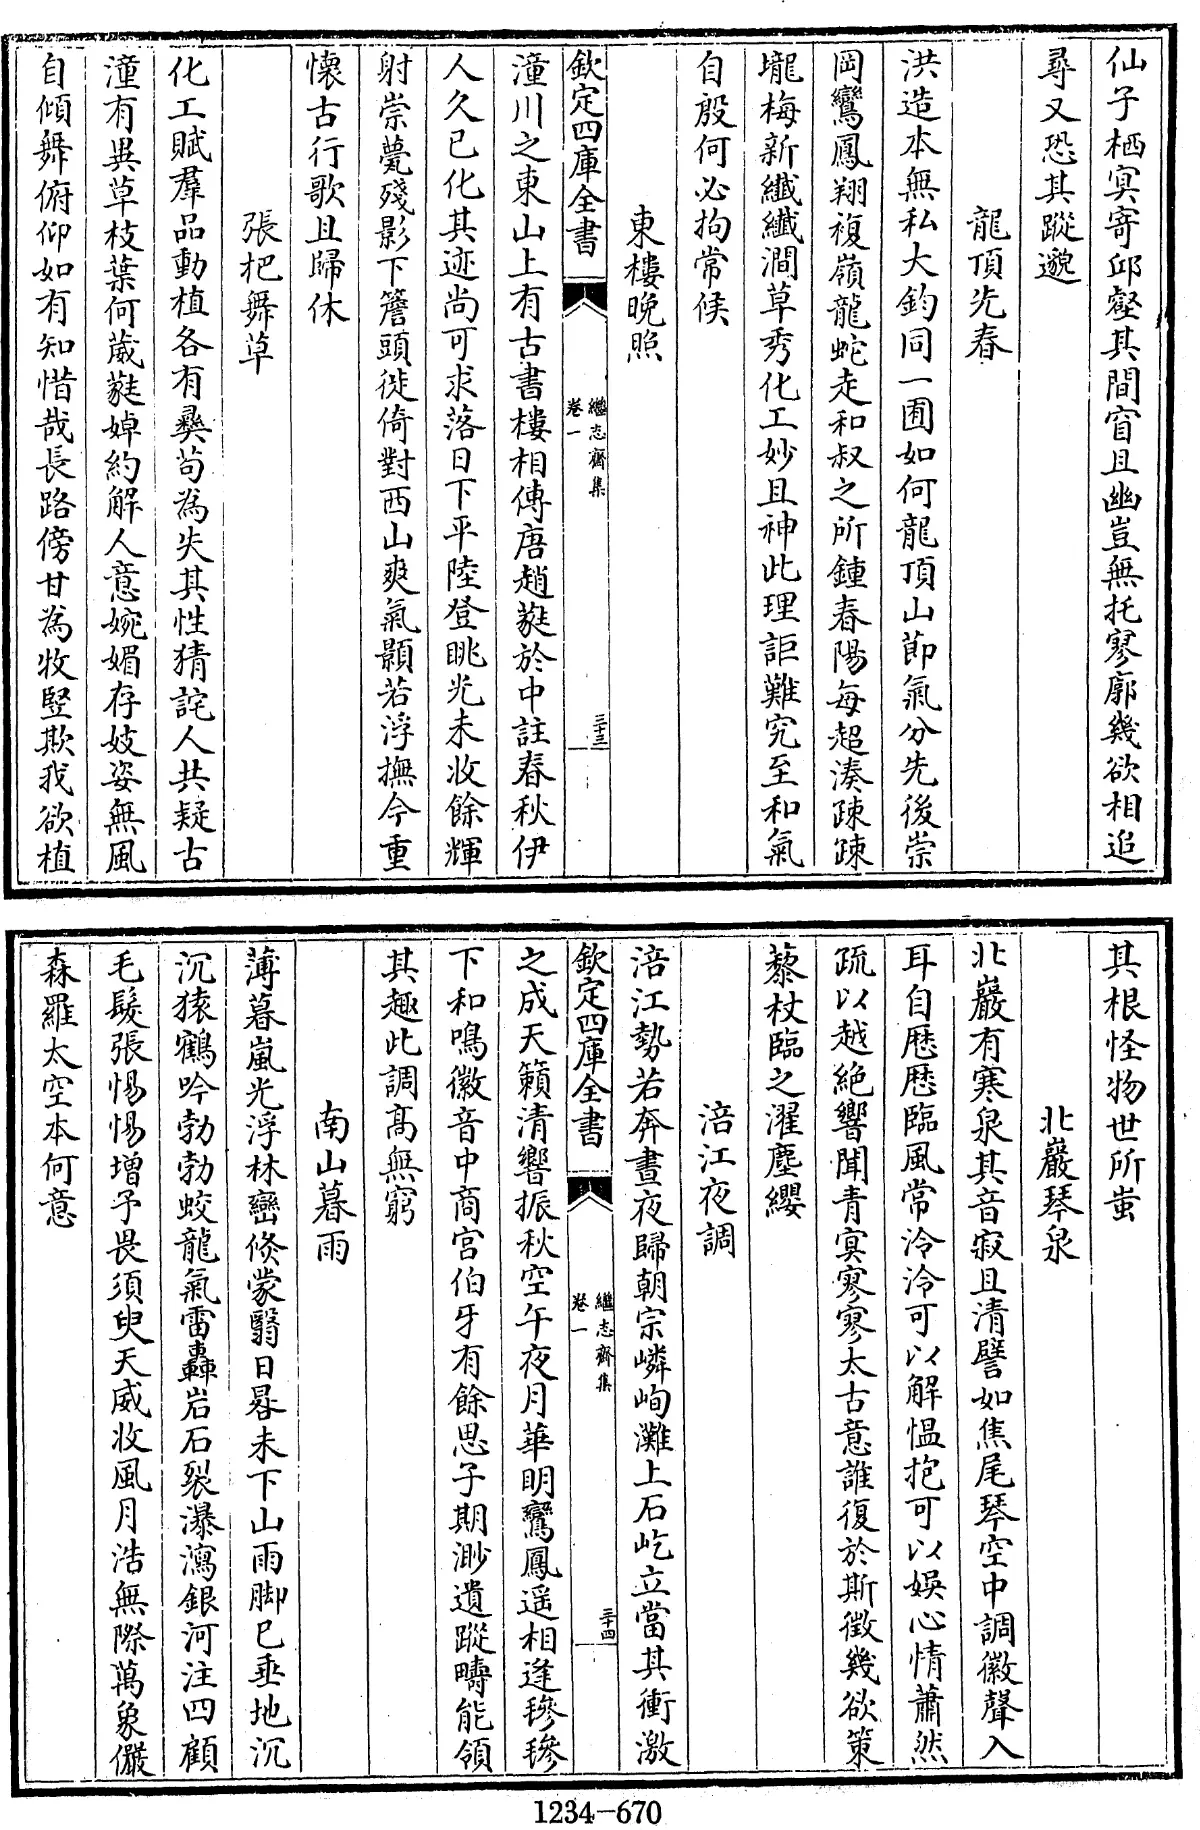 仙子栖冥寄邱壑其間窅且幽豈無托寥廓幾欲相追
尋又恐其蹤邈
龍頂先春
洪造本無私大鈞同一囿如何龍頂山節氣分先後崇
岡鸞鳳翔複嶺龍蛇走和叔之所鍾春陽每超湊疎疎
壠梅新纖纖澗草秀化工妙且神此理詎難究至和氣
自殷何必拘常候
東樓晚照
欽定四庫全書
繼志齋集
卷一
三十三
潼川之東山上有古書樓相傳唐趙蕤於中註春秋伊
人久已化其迹尚可求落日下平陸登眺光未收餘輝
射崇甍殘影下簷頭徙倚對西山爽氣顥若浮撫今重
懷古行歌且歸休
張把舞草
化工賦羣品動植各有彝苟為失其性猜詫人共疑古
潼有異草枝葉何葳蕤婥約解人意婉媚存妓姿無風
自傾舞俯仰如有知惜哉長路傍甘為牧豎欺我欲植
其根怪物世所蚩
北巖琴泉
北巖有寒泉其音寂且清譬如焦尾琴空中調徽聲入
耳自歷歷臨風常泠泠可以解愠抱可以娛心情蕭然
疏以越絶響聞青冥寥寥太古意誰復於斯徵幾欲策
藜杖臨之濯塵纓
涪江夜調
涪江勢若奔晝夜歸朝宗嶙峋灘上石屹立當其衝激
欽定四庫全書
繼志齋集
卷一
三十四
之成天籟清響振秋空午夜月華明鸞鳳遥相逢毿毿
下和鳴徽音中商宫伯牙有餘思子期渺遺蹤疇能領
其趣此調髙無窮
南山暮雨
薄暮嵐光浮林巒倐蒙翳日晷未下山雨脚已垂地沉
沉猿鶴吟勃勃蛟龍氣雷轟岩石裂瀑瀉銀河注四顧
毛髮張惕惕增予畏須臾天威收風月浩無際萬象儼
森羅太空本何意
1234-670